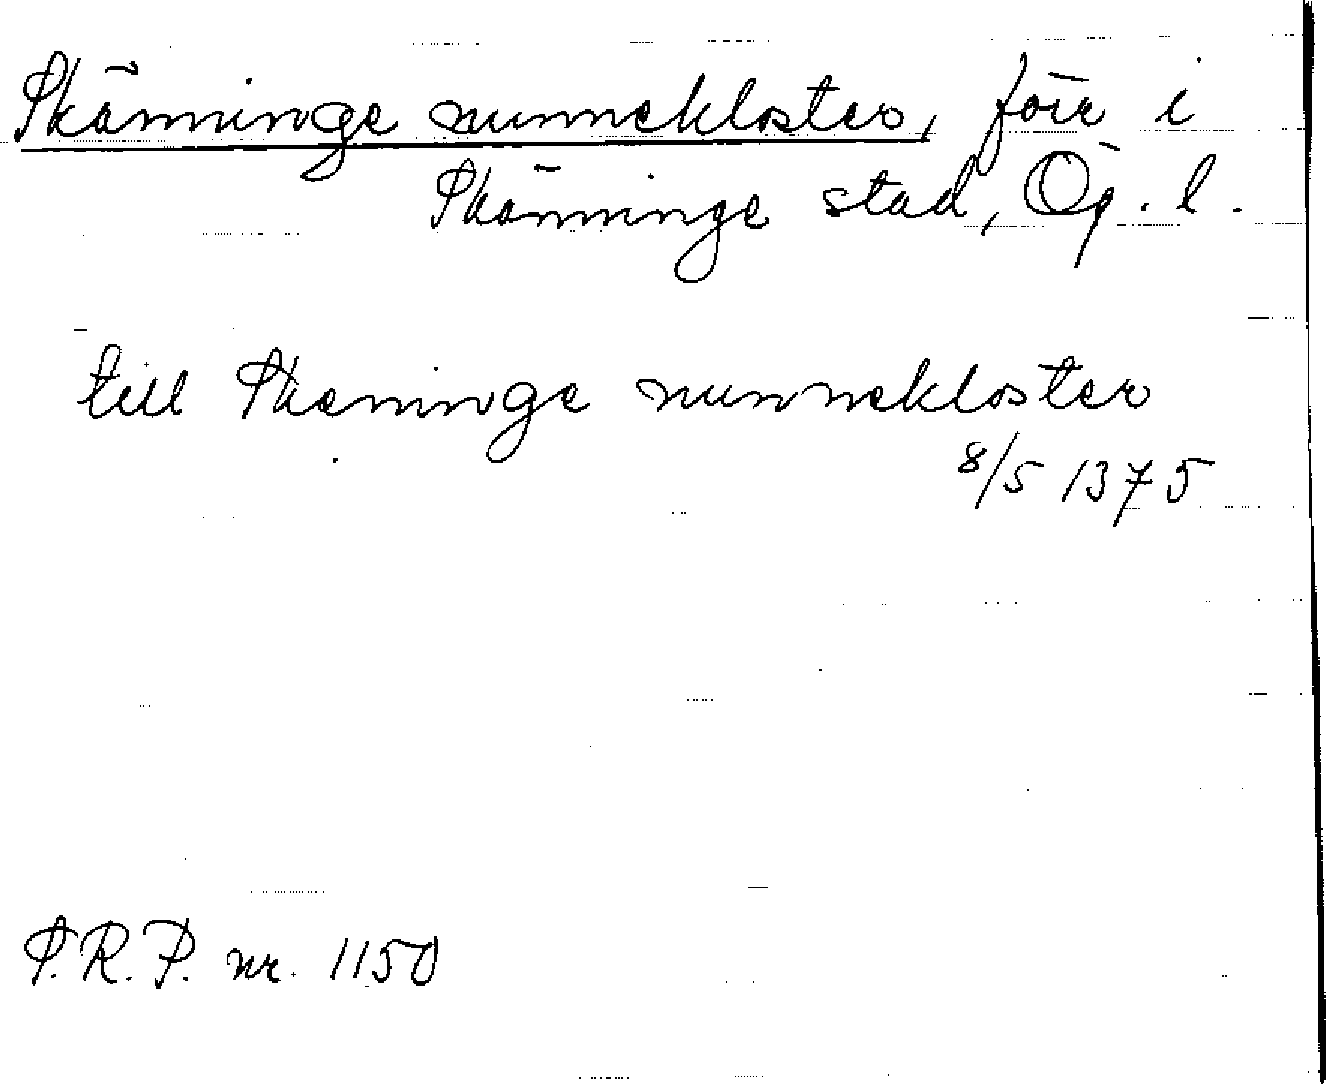 Skänninge nunnekloster, förr i
Skänninge stad, Ög. l.
till Skeninge nunnekloster
8/5 1375
S.R.P. nr. 1150